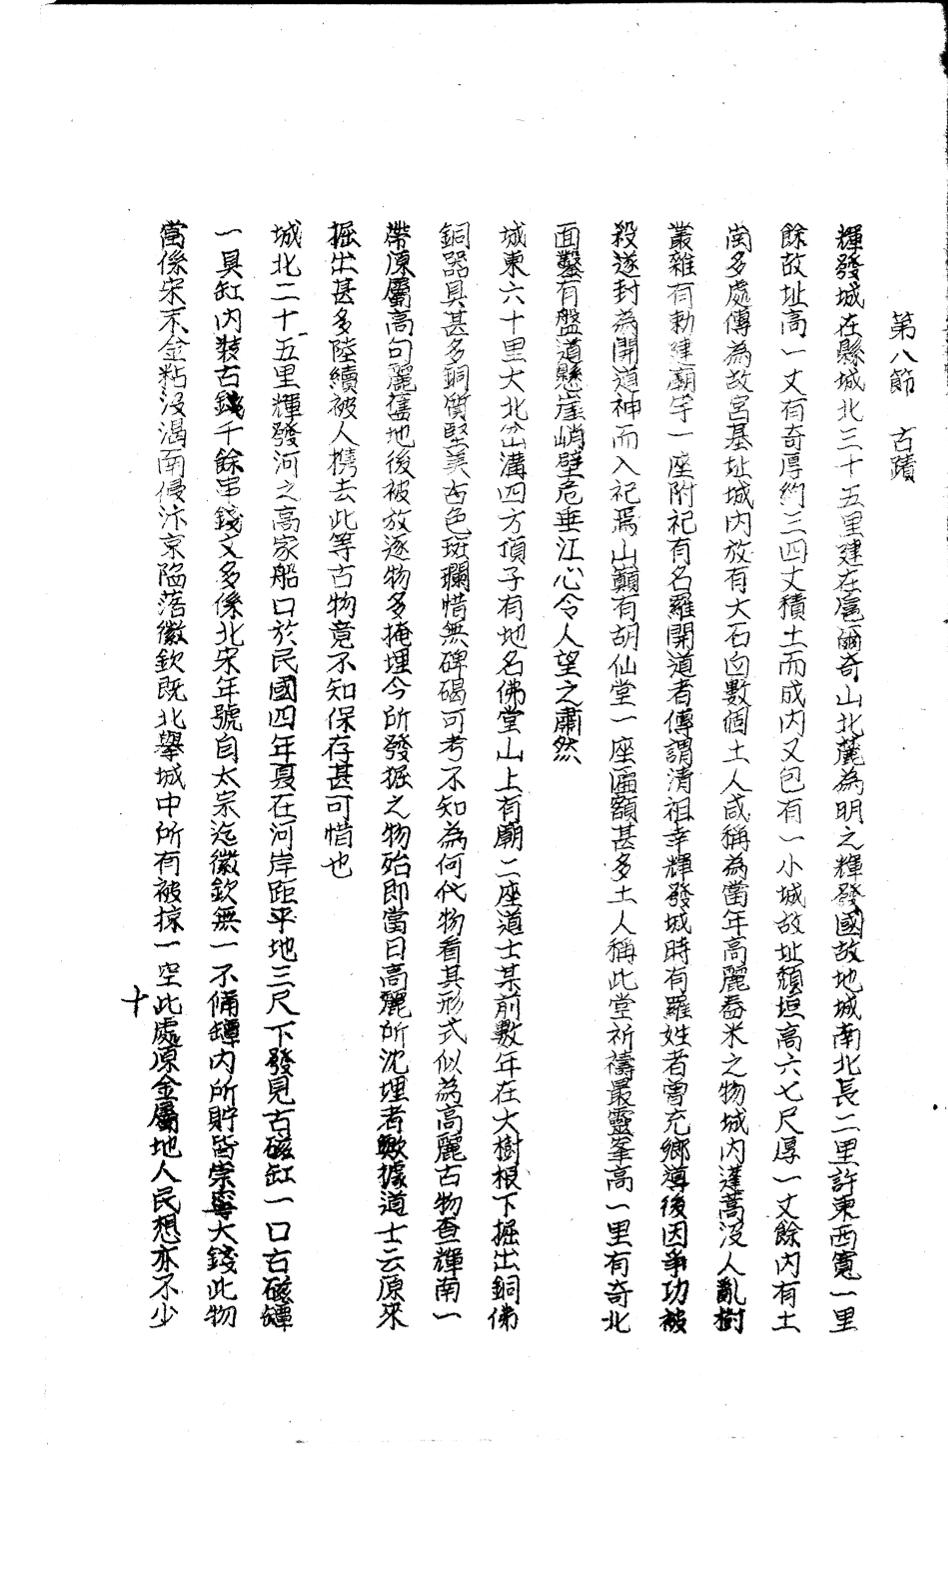 第八節 古蹟
輝發城在縣城北三十五里建在扈爾奇山北麓為明之輝發國故地城南北長二里許東西寬一里
餘故址高一丈有奇厚約三四丈積土而成內又包有一小城故址頹垣高六七尺厚一丈餘內有土
崗多處傳為故宮基址城內放有大石臼數個土人咸稱為當年高麗舂米之物城內蓬蒿沒人亂樹
叢雜有勅建廟宇一座附祀有名羅開道者傳謂清祖幸輝發城時有羅姓者曾充鄉導後因爭功被
殺遂封為開道神而入祀焉山巔有胡仙堂一座匾額甚多土人稱此堂祈禱最靈峯高一里有奇北
面鑿有盤道懸崖峭壁危垂江心令人望之肅然
城東六十里大北岔溝四方頂子有地名佛堂山上有廟二座道士某前數年在大樹根下掘出銅佛
銅器具甚多銅質堅美古色斑斕惜無碑碣可考不知為何代物看其形式似為高麗古物查輝南一
帶原屬高句麗舊地後被放逐物多掩埋今所發掘之物殆即當日高麗所沈埋者歟據道士云原來
掘出甚多陸續被人携去此等古物竟不知保存甚可惜也
城北二十五里輝發河之高家船口於民國四年夏在河岸距平地三尺下發見古磁缸一口古磁罈
一具缸內裝古錢千餘串錢文多係北宋年號自太宗迄徽欽無一不備罈內所貯皆崇寧大錢此物
當係宋末金粘沒渴南侵汴京陷落徽欽既北舉城中所有被掠一空此處原金屬地人民想亦不少
十